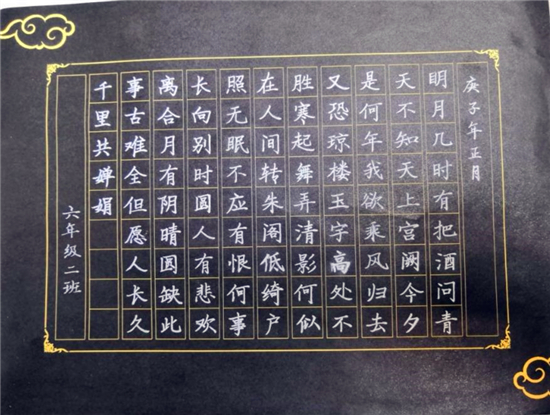 庚子年正月
明月几时有把酒问青
天不知天上宫阙今夕
是何年我欲乘风归去
又恐琼楼玉宇高处不
胜寒起舞弄清影何似
在人间转朱阁低绮户
照无眠不应有恨何事
长向别时圆人有悲欢
离合月有阴晴圆缺此
事古难全但愿人长久
千里共婵娟
六年级二班